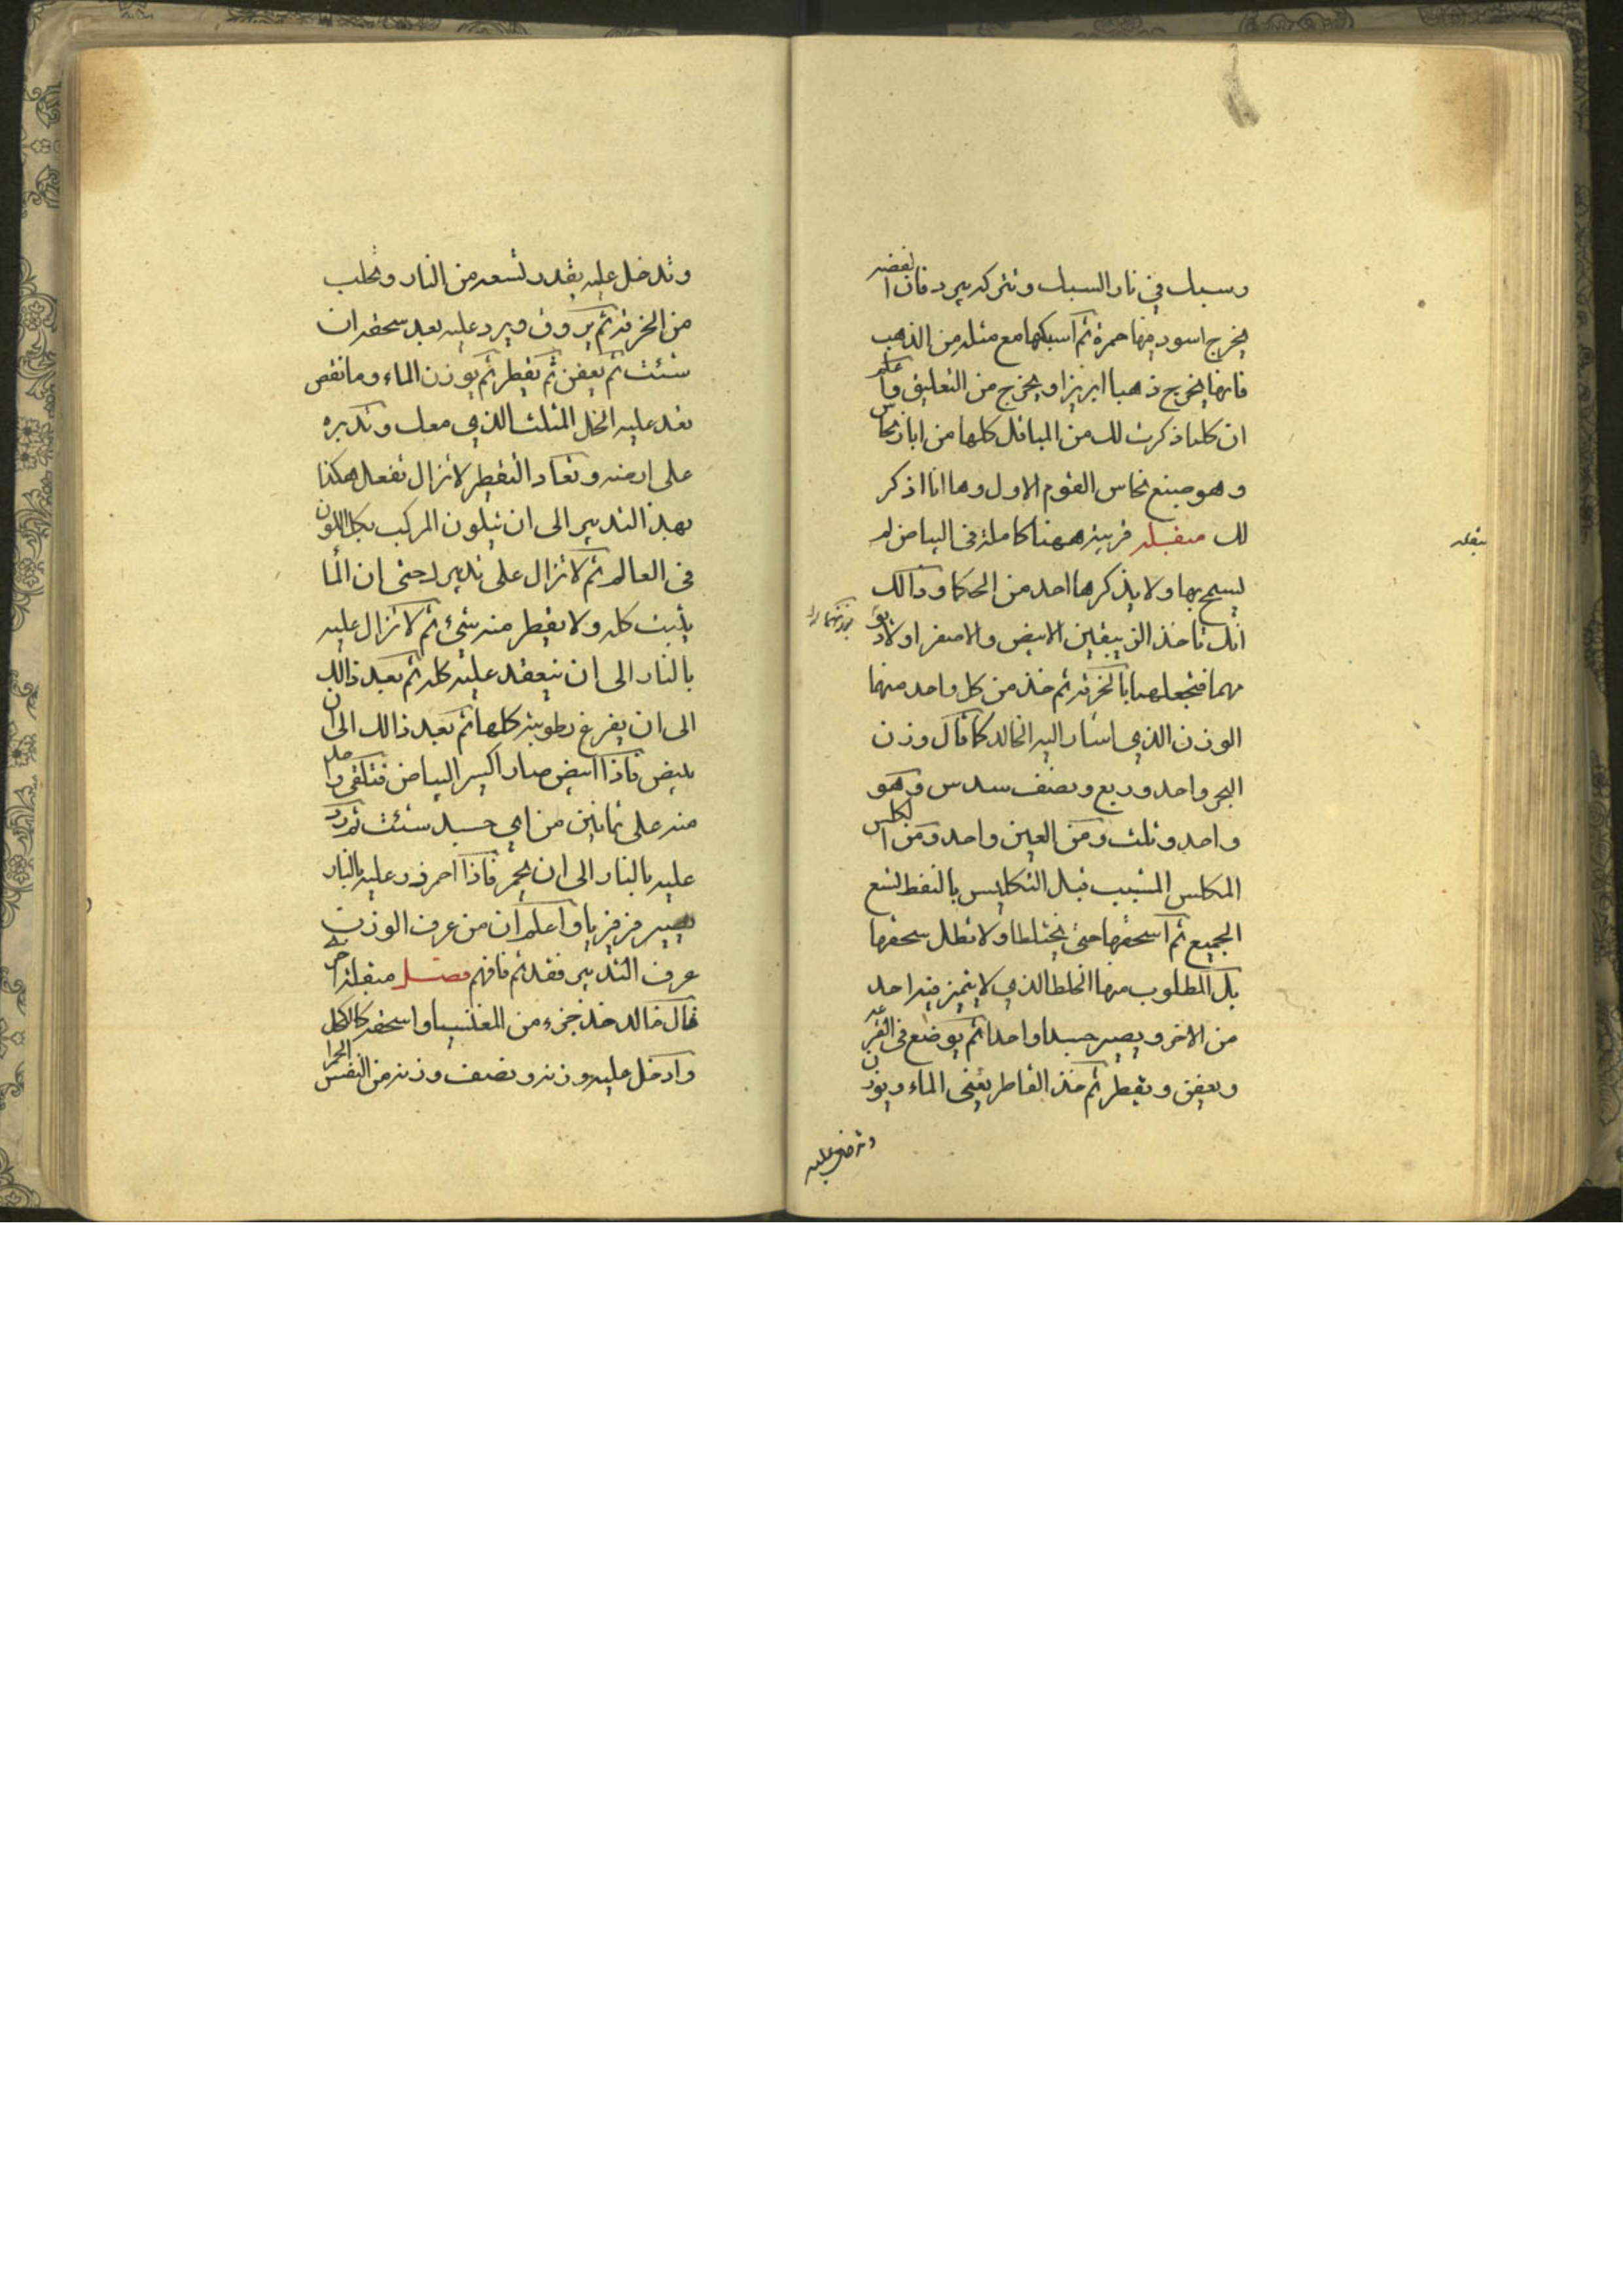 وسبك في نار السبك وتتركه يبرد فان الفضه
يخرج اسود منها حمرة ثم اسبكها مع مثله من الذهب
فانها يخرج ذهبا ابريزا ويخرج من التعليق واعلم
ان كلما ذكرت لك من المباقل كلها من ابار نحاس
وهو صبغ نحاس القوم الاول وها انا اذكر
لك مبقلة قريبة ههنا كاملة في البياض لم
يسمح بها ولا يذكرها احد من الحكما وذالك
انك تاخذ الزيبقين الابيض والاصفر اولا
مهما فتجعلهما بالخرقة ثم خذ من كل واحد منهما
الوزن الذي اشار اليه الخالد كما قال وزن
البحر واحد وربع ونصف سدس وهو
واحد وثلث ومن العين واحد ومن الكلس
المكلس المشبب قبل التكليس بالنفط لتسع
الجميع ثم اسحقها حتى يختلطا ولا تطل سحقها
بل المطلوب منها الخلط الذي لا يتميز فيه احد
من الاخر ويصير جسدا واحدا ثم يوضع في القرعه
ويعفن ويقطر ثم خذ القاطر يعني الماء ويوزن
مبقله
وتدخل عليه
وتدخل عليه بقدر تسعه من النار وتحلب
من الخرقة ثم يروق ويرد عليه بعد سحقه ان
شئت ثم يعفن ثم يقطر ثم يوزن الماء وما نقص
تعد عليه الخل المثلث الذي معك وتدبره
على ارضه وتعاد التقطير لا تزال تفعل هكذا
بهذ التدبير الى ان يتلون المركب بكل اللون
في العالم ثم لا تزال على تدبيره حتى ان الما
يثبت كله ولا يقطر منه شيئ ثم لا تزال عليه
بالنار الى ان ينعقد عليه كله ثم بعد ذالك
الى ان يفرغ رطوبته كلها ثم بعد ذالك الى ان
يبيض فاذا ابيض صار اكسير البياض فتلقي
منه على ثمانين من اي جسد شئت ثم
عليه بالنار الى ان يحمر فاذا احمر زد عليه بالنار
يصير فرفيريا واعلم ان من عرف الوزن
عرف التدبير فقد تم فافهم فصل مبقلة
قال خالد خذ جزء من المغنيسيا واسحقه كالكحل
وادخل عليه وزنه ونصف وزنه من النفس الحمرا